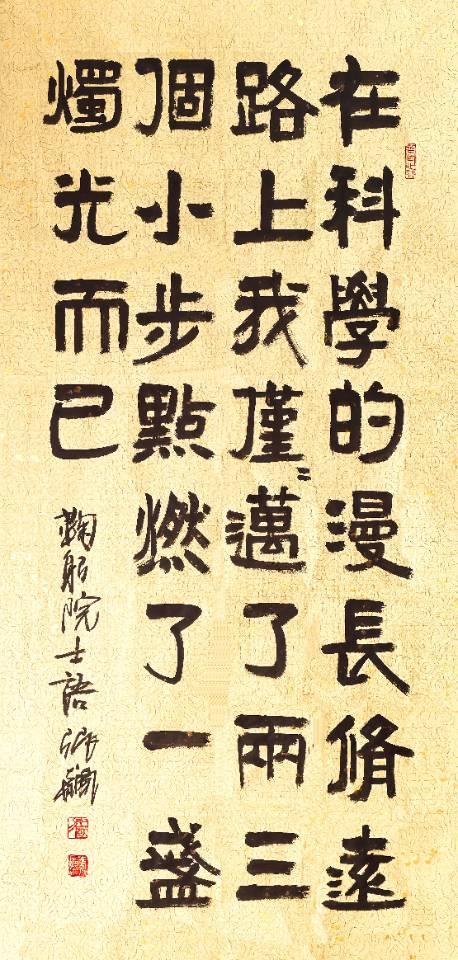 在科學的漫長脩遠
路上我僅僅邁了兩三
個小步點燃了一盞
燭光而已
院士語